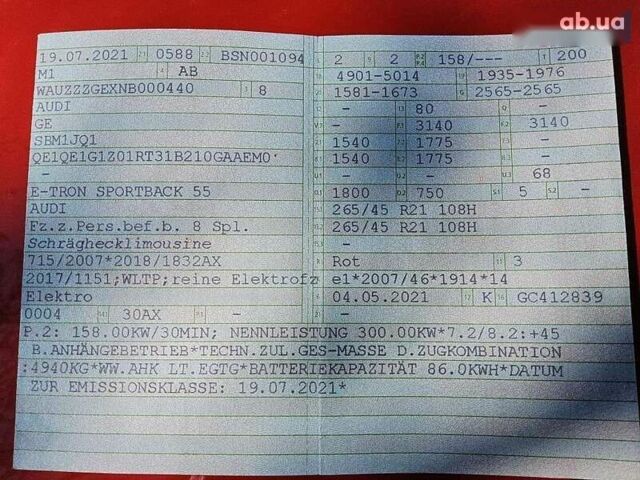 ab.ua
19.07.2021 2.1 0588 2.2 BSN001094
M1 4 AB
WAUZZZGEXNB000440 3 8
AUDI
GE
SBM1JQ1
QE1QE1G1Z01RT31B210GAAEM0
-
E-TRON SPORTBACK 55
AUDI
Fz.z.Pers.bef.b. 8 Spl.
Schräghecklimousine
715/2007*2018/1832AX
2017/1151;WLTP;reine Elektrofz
Elektro
0004 30AX -
L 2 9 2 158/--- T 200
18 4901-5014 19 1935-1976
20 1581-1673 G 2565-2565
- 13 80 Q -
- 3140 3140
1540 7.2 1775 -
1540 8.2 1775 -
U.1 - - U.3 68
O.1 1800 O.2 750 S.1 5 S.2 -
265/45 R21 108H
265/45 R21 108H
-
R Rot 11 3
K e1*2007/46*1914*14
6 04.05.2021 17 K 16 GC412839
-
P.2: 158.00KW/30MIN; NENNLEISTUNG 300.00KW*7.2/8.2:+45
B.ANHÄNGEBETRIEB*TECHN.ZUL.GES-MASSE D.ZUGKOMBINATION
:4940KG*WW.AHK LT.EGTG*BATTERIEKAPAZITÄT 86.0KWH*DATUM
ZUR EMISSIONSKLASSE: 19.07.2021*